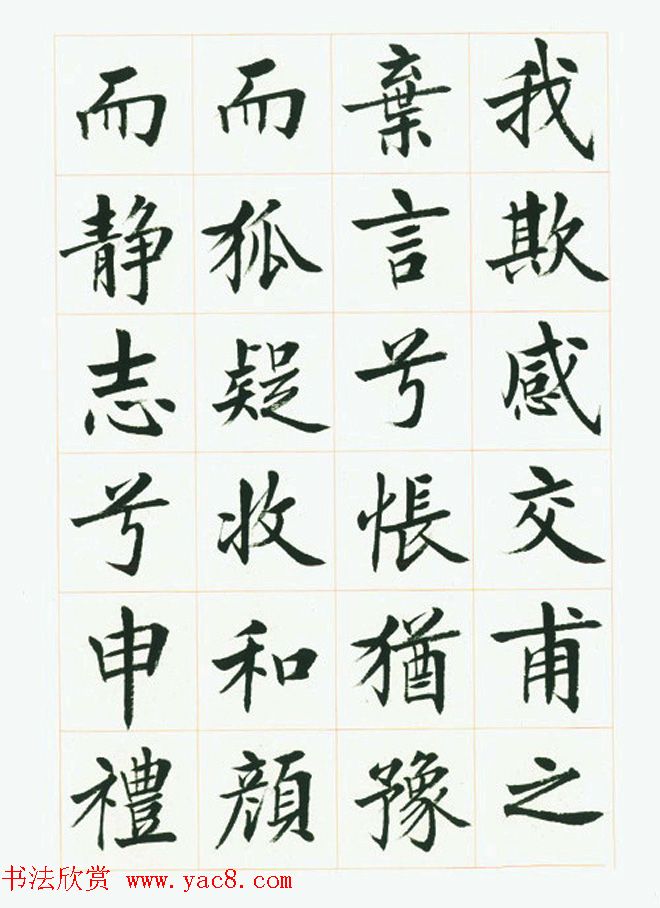 我欺感交甫之
棄言兮悵猶豫
而狐疑收和顏
而静志兮申禮
书法欣赏 www.yac8.com